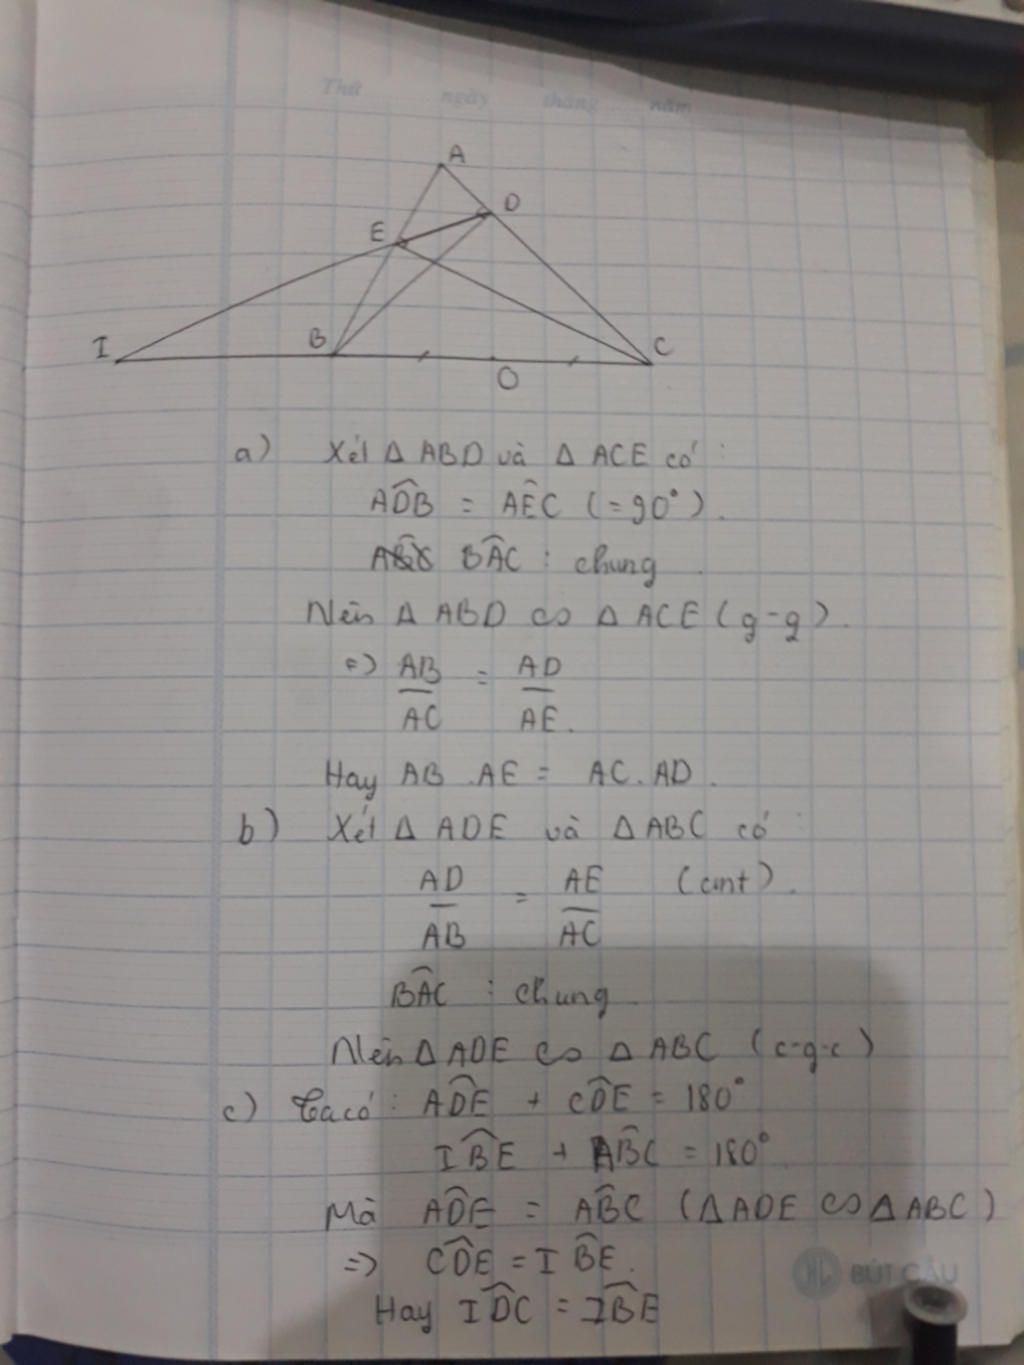 Thứ ngày tháng năm
A
D
E
I B C
O
a) Xét Δ ABD và Δ ACE có :
ADB̂ = AÊC (= 90°).
BÂC : chung
Nên Δ ABD ∽ Δ ACE (g-g).
=> AB/AC = AD/AE.
Hay AB . AE = AC . AD.
b) Xét Δ ADE và Δ ABC có :
AD/AB = AE/AC (cmt).
BÂC : chung
Nên Δ ADE ∽ Δ ABC (c-g-c)
c) Ta có : AD̂E + CD̂E = 180°
IB̂E + AB̂C = 180°
Mà AD̂E = AB̂C (Δ ADE ∽ Δ ABC)
=> CD̂E = IB̂E.
Hay ID̂C = IB̂E
BÚT CẬU